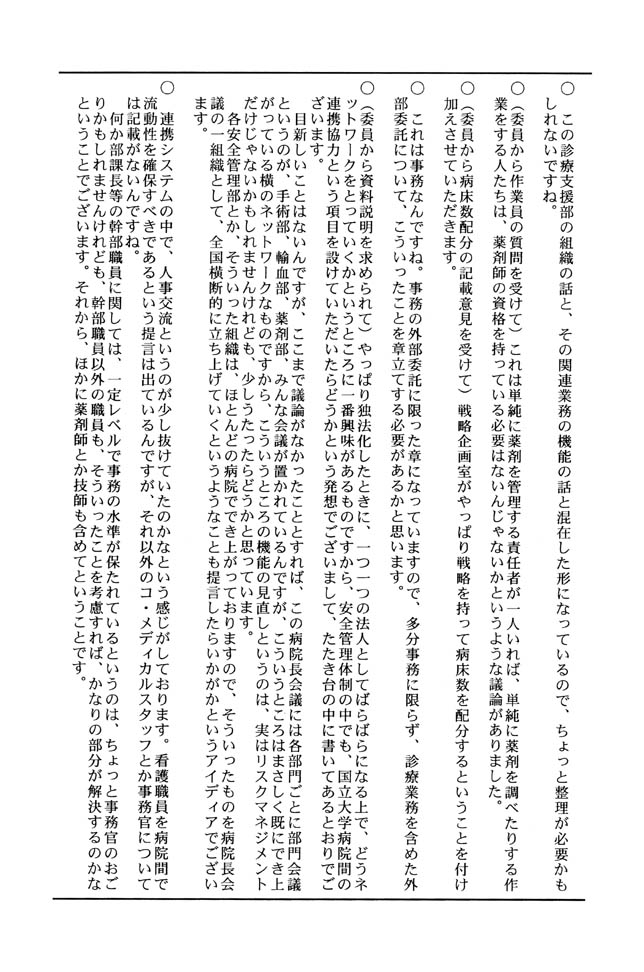 ○　この診療支援部の組織の話と、その関連業務の機能の話と混在した形になっているので、ちょっと整理が必要かも
しれないですね。
○（委員から作業員の質問を受けて）これは単純に薬剤を管理する責任者が一人いれば、単純に薬剤を調べたりする作
業をする人たちは、薬剤師の資格を持っている必要はないんじゃないかというような議論がありました。
○（委員から病床数配分の記載意見を受けて）戦略企画室がやっぱり戦略を持って病床数を配分するということを付け
加えさせていただきます。
○　これは事務なんですね。事務の外部委託に限った章になっていますので、多分事務に限らず、診療業務を含めた外
部委託について、こういったことを章立てする必要があるかと思います。
○（委員から資料説明を求められて）やっぱり独法化したときに、一つ一つの法人としてばらばらになる上で、どうネ
ットワークをとっていくかというところに一番興味があるものですから、安全管理体制の中でも、国立大学病院間の
連携協力という項目を設けていただいたらどうかという発想でございまして、たたき台の中に書いてあるとおりでご
ざいます。
　目新しいことはないんですが、ここまで議論がなかったこととすれば、この病院長会議には各部門ごとに部門会議
というのが、手術部、輸血部、薬剤部、みんな会議が置かれているんですが、こういうところはまさしく既にでき上
がっている横のネットワークなものですから、こういうところの機能の見直しというのは、実はリスクマネジメント
だけじゃないかもしれませんけれども、少しうたったらどうかと思っています。
　各安全管理部とか、そういった組織は、ほとんどの病院ででき上がっておりますので、そういったものを病院長会
議の一組織として、全国横断的に立ち上げていくというようなことも提言したらいかがかというアイディアでござい
ます。
○　連携システムの中で、人事交流というのが少し抜けていたのかなという感じがしております。看護職員を病院間で
流動性を確保すべきであるという提言は出ているんですが、それ以外のコ・メディカルスタッフとか事務官について
は記載がないんですね。
　何か部課長等の幹部職員に関しては、一定レベルで事務の水準が保たれているというのは、ちょっと事務官のおご
りかもしれませんけれども、幹部職員以外の職員も、そういったことを考慮すれば、かなりの部分が解決するのかな
ということでございます。それから、ほかに薬剤師とか技師も含めてということです。